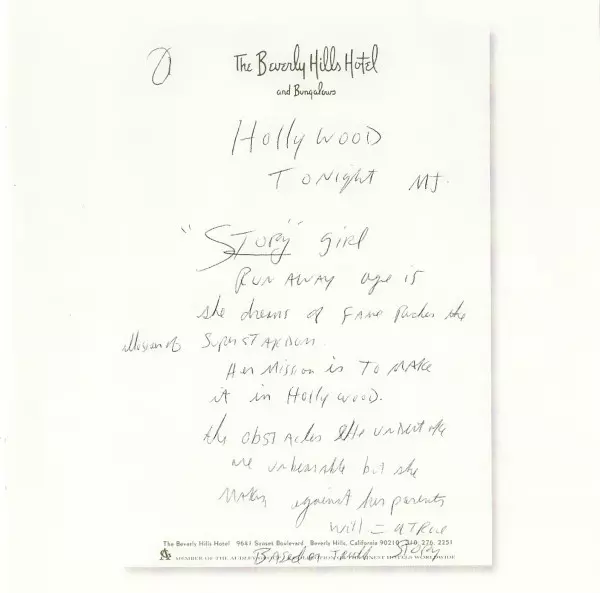 The Beverly Hills Hotel
and Bungalows
Hollywood
Tonight MJ.
"Story" girl
RUNAWAY age is
she dreams of FAME the
illusion of SuperSTARDOM.
Her Mission is To MAKE
it in Hollywood.
the obstacles she undertake
are unbearable but she
Makes against her parents
will = a TRUE
The Beverly Hills Hotel 9641 Sunset Boulevard, Beverly Hills, California 90210 310 276 2251
Based on Truth Story